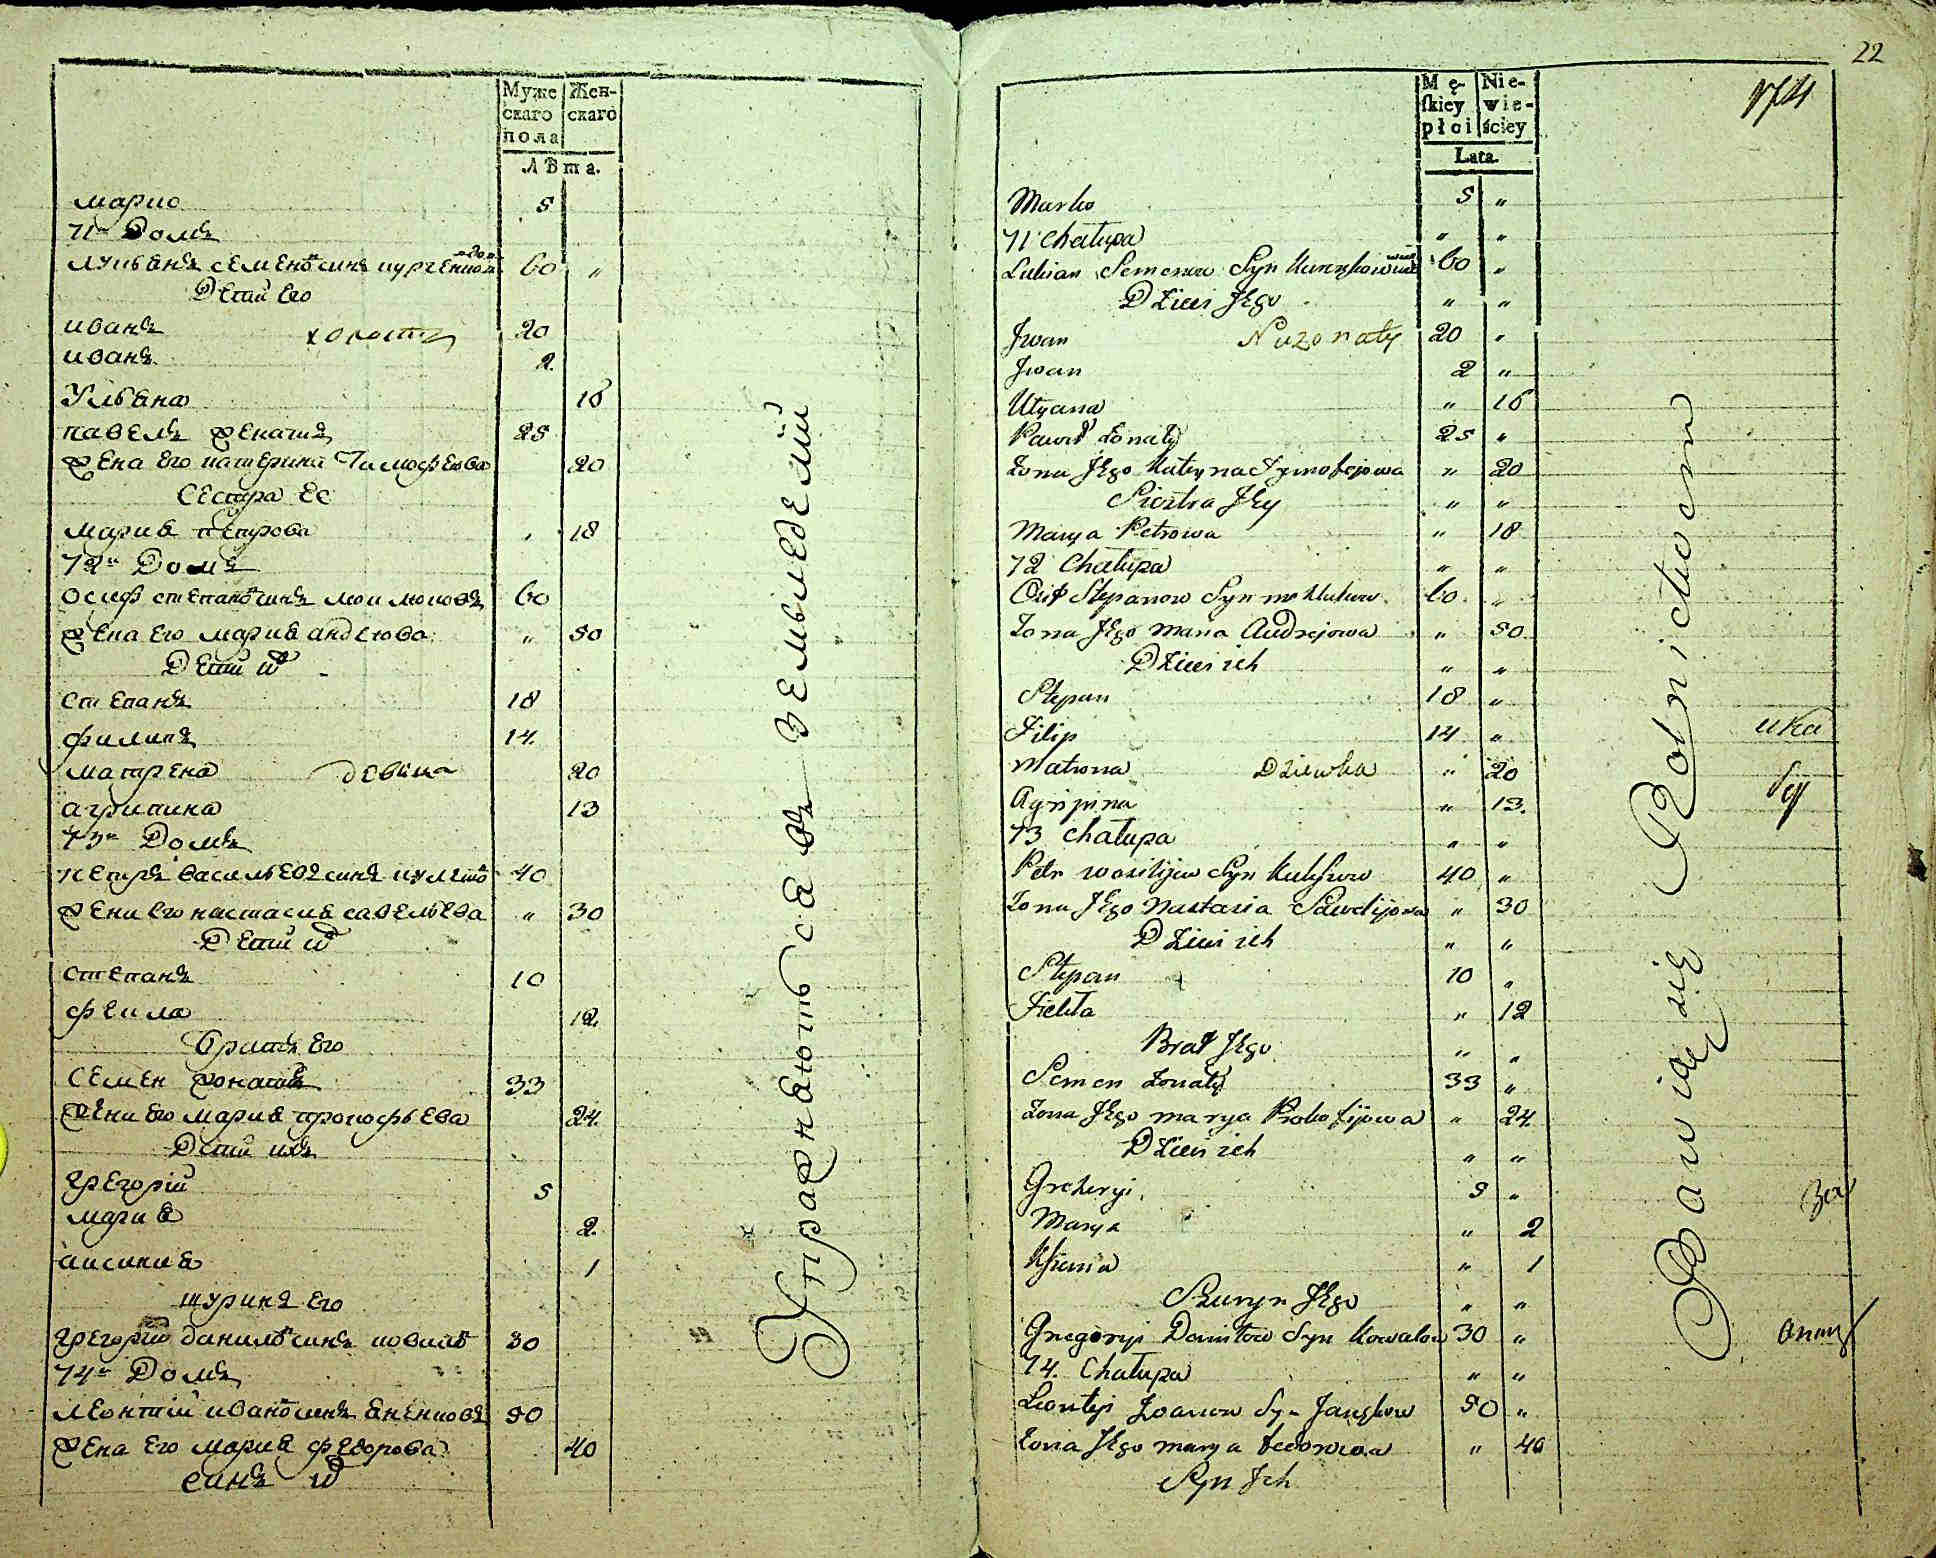 Муже
скаго
пола
Жен-
скаго
ЛѢта.
марко 5
71й Домъ
лукьянъ семеновъ синъ 60 "
Дети Его
иванъ холостъ 20
иванъ 2
Ульяна 16
павелъ женатъ 25
жена Его катерина Тимофеева 20
Сестра Ее
мария петрова " 18
72й Домъ
осипъ степановъ синъ 60
жена Его мария андреева " 50
Дети их
степанъ 18
филипъ 14
матрена девка 20
агрипина 13
73й Домъ
петръ васильевъ синъ 40
жена его настасия савельева " 30
Дети их
степанъ 10
фекла 12
братъ Его
семен жонатъ 33
жена Его мария прокофьева 24
Дети ихъ
григорий 5
мария 2
аксиния 1
шуринъ Его
григорий даниловъ синъ ковалев 30
74й Домъ
леонтий ивановъ синъ яненковъ 50
жена Его мария федорова 40
синъ их
Упражняются въ земледелии
22
Mę-
skiey
płci
Nie-
wie-
ściey
Lata.
Marko 5 "
71 Chałupa " "
Lukian Semenow Syn 60 "
Dzieci Jego " "
Iwan Nieżonaty 20 "
Iwan 2 "
Ulyana " 16
Paweł Żonaty 25 "
Żona Jego Kateryna Tymofejowa " 20
Siostra Jey " "
Marya Petrowa " 18
72 Chałupa " "
Osip Stepanow Syn 60 "
Żona Jego Maria Andrejowa " 50
Dzieci ich " "
Stepan 18 "
Filip 14 "
Matrona Dziewka " 20
Agripina " 13
73 Chałupa " "
Petr Wasilijew Syn 40 "
Żona Jego Nastasia Sawelijowa " 30
Dzieci ich " "
Stepan 10 "
Fiekła " 12
Brat Jego " "
Semen Żonaty 33 "
Żona Jego Marya Prokofijowa " 24
Dzieci ich " "
Grehoryi 5 "
Marya " 2
Ksienia " 1
Szuryn Jego " "
Gregoryi Daniłow Syn Kowalow 30 "
74 Chałupa " "
Leontyi Iwanow Syn Janękow 50 "
Żona Jego Marya Fedorowa " 40
Syn Ich
Bawią się Rolnictwem